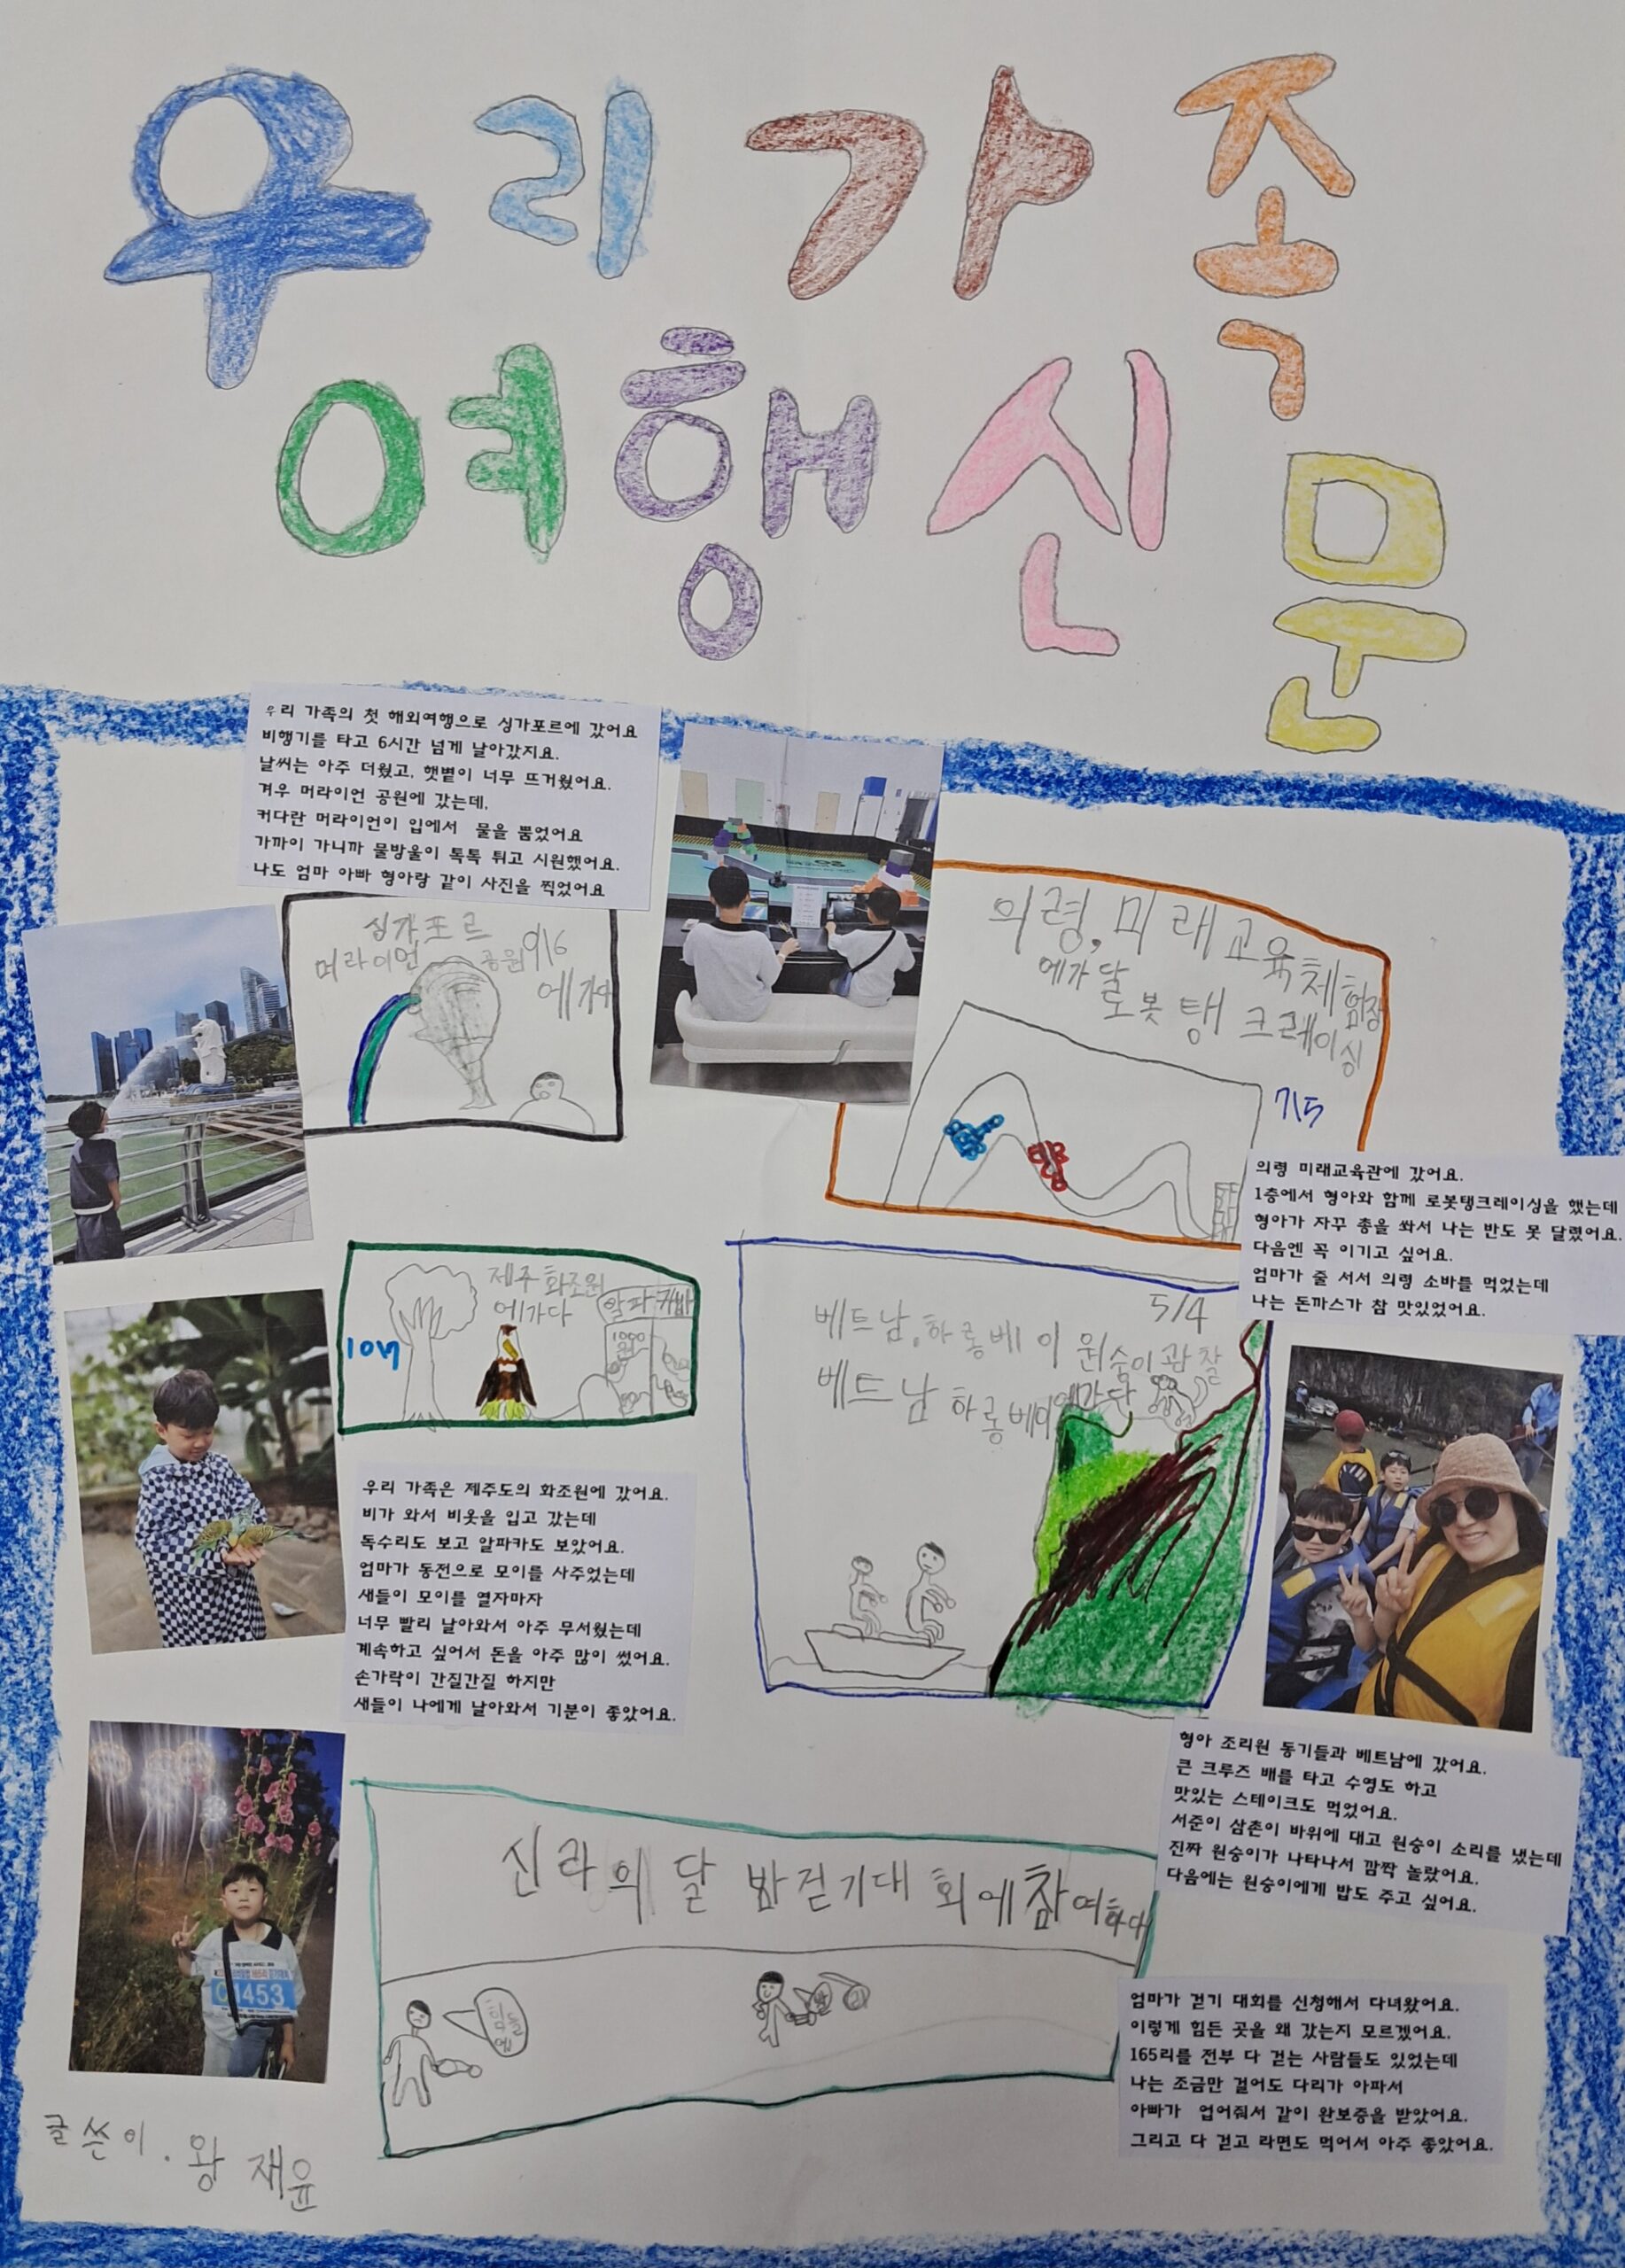 우리 가족
여행 신문
우리 가족의 첫 해외여행으로 싱가포르에 갔어요
비행기를 타고 6시간 넘게 날아갔지요.
날씨는 아주 더웠고, 햇볕이 너무 뜨거웠어요.
겨우 머라이언 공원에 갔는데,
커다란 머라이언이 입에서 물을 뿜었어요
가까이 가니까 물방울이 톡톡 튀고 시원했어요.
나도 엄마 아빠 형아랑 같이 사진을 찍었어요
싱가포르
머라이언 공원 9\6
에가다
의령, 미래교육체험장
에가달
로봇 탱크레이싱
7\5
의령 미래교육관에 갔어요.
1층에서 형아와 함께 로봇탱크레이싱을 했는데
형아가 자꾸 총을 쏴서 나는 반도 못 달렸어요.
다음엔 꼭 이기고 싶어요.
엄마가 줄 서서 의령 소바를 먹었는데
나는 돈까스가 참 맛있었어요.
제주 화조원
에가다
알파카밥
1000
원
우리 가족은 제주도의 화조원에 갔어요.
비가 와서 비옷을 입고 갔는데
독수리도 보고 알파카도 보았어요.
엄마가 동전으로 모이를 사주었는데
새들이 모이를 열자마자
너무 빨리 날아와서 아주 무서웠는데
계속하고 싶어서 돈을 아주 많이 썼어요.
손가락이 간질간질 하지만
새들이 나에게 날아와서 기분이 좋았어요.
5/4
베트남, 하롱베이 원숭이관찰
베트남 하롱베이에간다
형아 조리원 동기들과 베트남에 갔어요.
큰 크루즈 배를 타고 수영도 하고
맛있는 스테이크도 먹었어요.
서준이 삼촌이 바위에 대고 원숭이 소리를 냈는데
진짜 원숭이가 나타나서 깜짝 놀랐어요.
다음에는 원숭이에게 밥도 주고 싶어요.
신라의 달 밤걷기대회에 참여하다
엄마가 걷기 대회를 신청해서 다녀왔어요.
이렇게 힘든 곳을 왜 갔는지 모르겠어요.
165리를 전부 다 걷는 사람들도 있었는데
나는 조금만 걸어도 다리가 아파서
아빠가 업어줘서 같이 완보증을 받았어요.
그리고 다 걷고 라면도 먹어서 아주 좋았어요.
글쓴이. 왕재윤